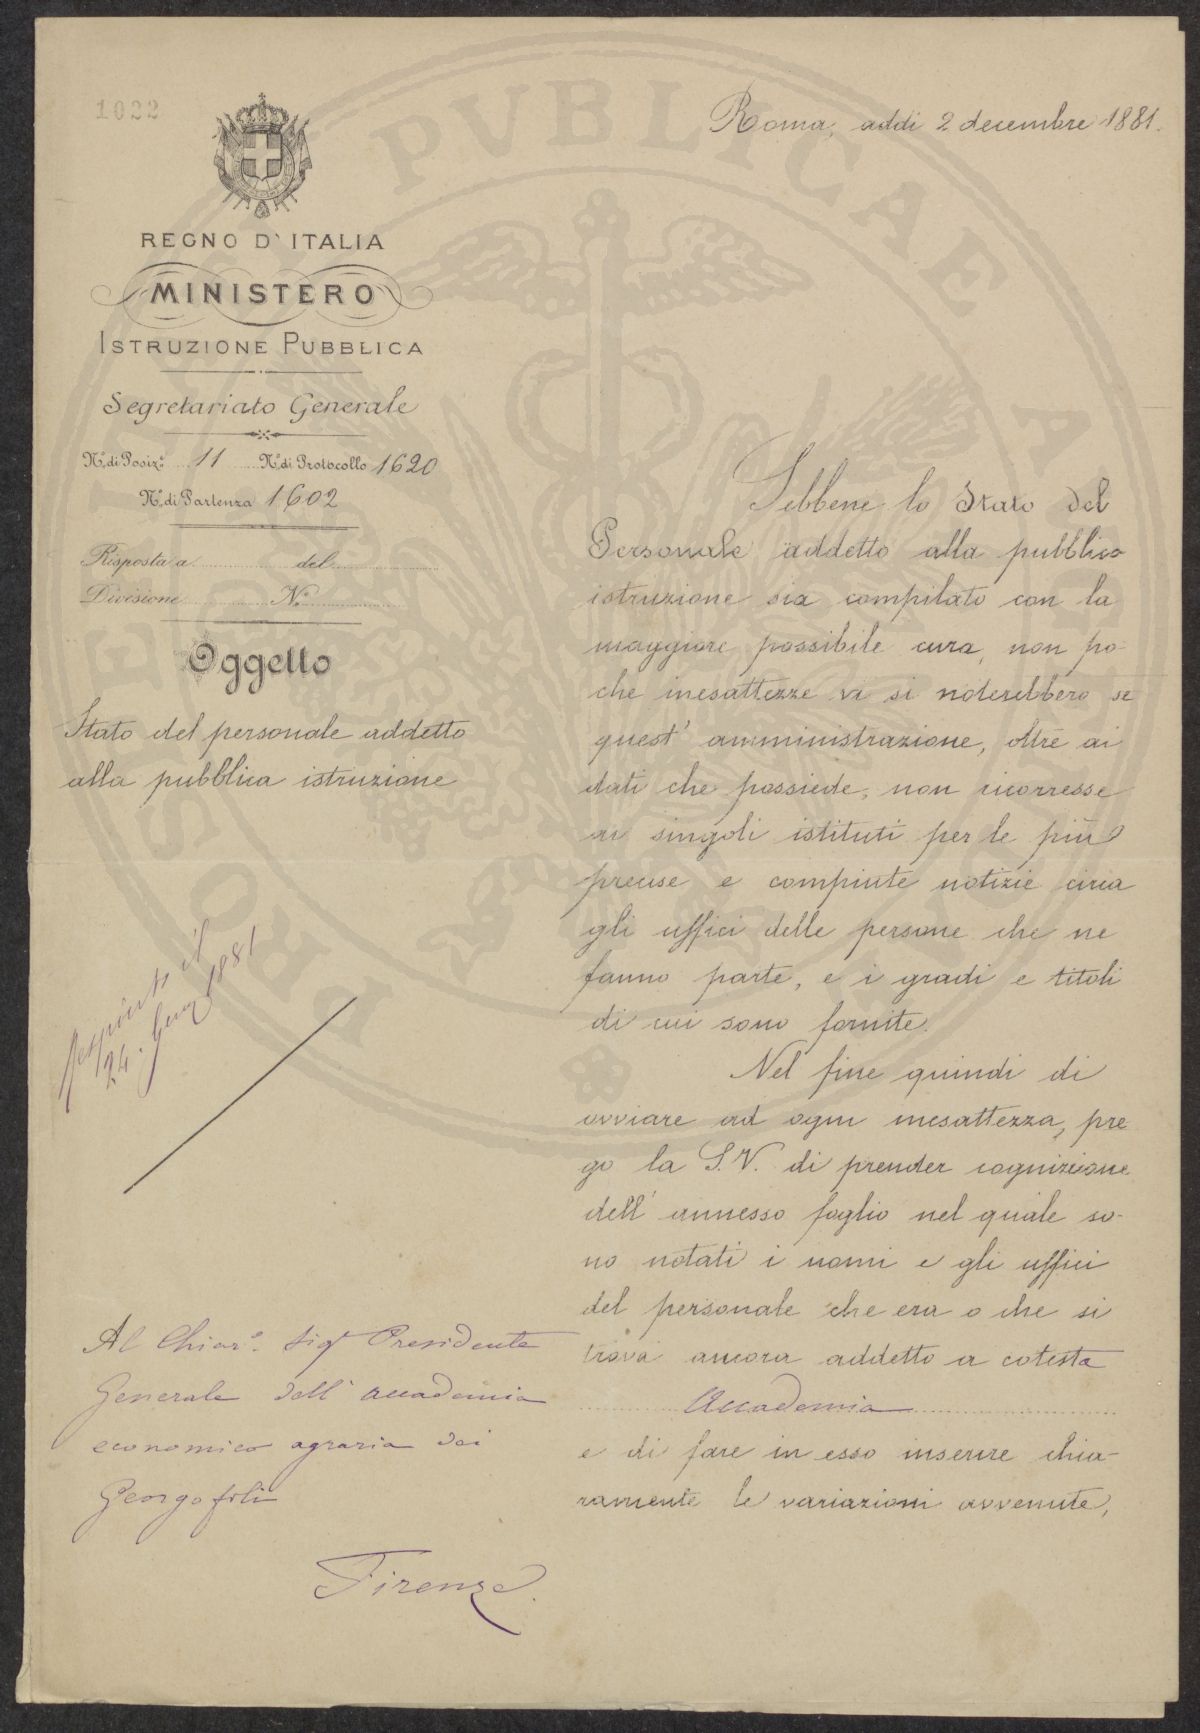 1022
Roma, addi 2 decembre 1881.
REGNO D'ITALIA
MINISTERO
ISTRUZIONE PUBBLICA
Segretariato Generale
N.º di Posiz.e 11 N.º di Protocollo 1620
N.º di Partenza 1602
Risposta a del
Divisione N.º
Oggetto
Stato del personale addetto
alla pubblica istruzione
il
24. 1881
Al Chiar.º Sigr Presidente
Generale dell' accademia
economico agraria dei
Georgofili
Firenze.
Sebbene lo Stato del
Personale addetto alla pubblica
istruzione sia compilato con la
maggiore possibile cura, non po-
che inesattezze vi si noterebbero se
quest' amministrazione, oltre ai
dati che possiede, non ricorresse
ai singoli istituti per le più
precise e compiute notizie circa
gli uffici delle persone che ne
fanno parte, e i gradi e titoli
di cui sono fornite.
Nel fine quindi di
ovviare ad ogni inesattezza, pre
go la S.V. di prender cognizione
dell' annesso foglio nel quale so-
no notati i nomi e gli uffici
del personale che era o che si
trova ancora addetto a cotesta
Accademia
e di fare in esso inserire chia-
ramente le variazioni avvenute,